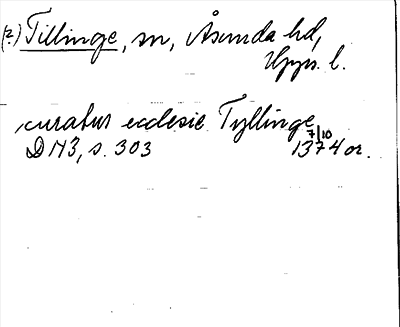 (?.) Tillinge, sn, Åsunda hd,
Upps. l.
curatus ecclesie Tyllinge
7/10
DN 3, s. 303 1374 or.